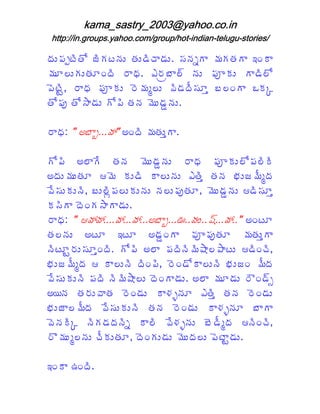 kama_sastry_2003@yahoo.co.in
http://in.groups.yahoo.com/group/hot-indian-telugu-stories/
దుప్పటితో జిగటను తుడిచాడు. సన్నగా మగతగా ఇంకా
మూలుగుతూంది రాధ. ఎర్రబాల్ ను పూకు గాడిలో
పెట్టి, రాధ పూకు రెమ్మలు విడదీసూ్త బలంగా ఒక్క
తోపు తోసాడు గోపి తన మొడ్డను.
రాధ: "అబ్బా...హా" అంది మత్తుగా.
గోపి అలాగే తన మొడ్డను రాధ పూకులోపలికి
అదుముతూ ఆమె కుడి కాలును ఎత్తి తన భుజమ్మీద
వేసుకుని, బుల్లి పలుకును నలుపుతూ, మొడ్డను ఆడిస్తూ
కసిగా దెంగసాగాడు.
రాధ: అంటూ
తలను అటూ ఇటూ అడ్డంగా పూపుతూ మత్తుగా
నిట్టూరుసూ్తంది. గోపి అలా పదినిమిషాలపాటు ఆడించి,
భుజమ్మీద ఆ కాలుని దింపి, రెండోకాలుని భుజం మీద
వేసుకుని పది నిమిషాలు దెంగాడు. అలా మూడు రౌండ్స్
అయిన తరువాత రెండు కాళ్ళనూ ఎత్తి తన రెండు
భుజాలమీద వేసుకుని తన రెండు కాళ్ళనూ బాగా
వెనక్కి నిగడదన్ని కాలి వేళ్ళను బెడ్మీద ఆనించి,
రొమ్ములను చీకుతూ, దెంగుడు మొదలు పెట్టాడు.
ఇంకా ఉంది.